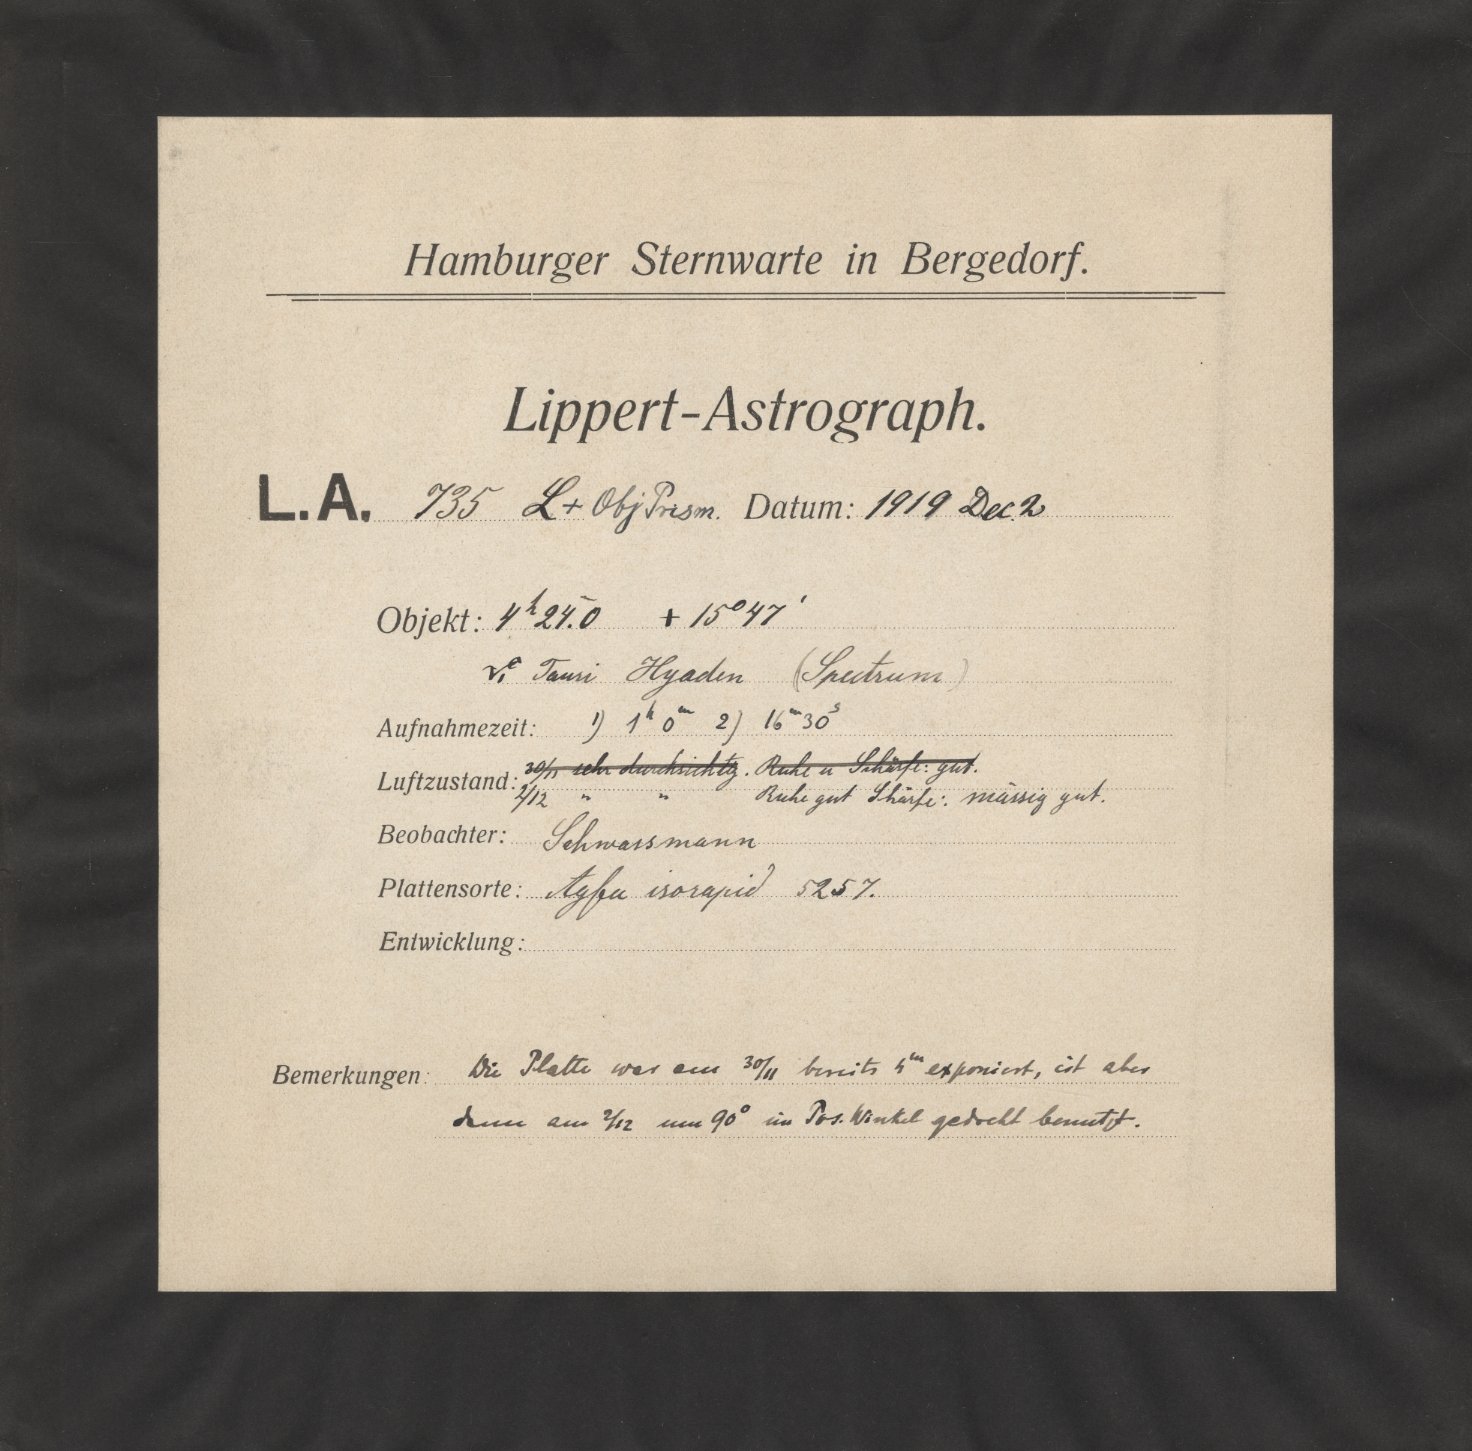 Hamburger Sternwarte in Bergedorf.
Lippert-Astrograph.
L.A. 735 L + Obj Prism. Datum: 1919 Dec. 2
Objekt: 4ʰ 24.ᵐ0 + 15° 47'
Tauri Hyaden (Spectrum)
Aufnahmezeit: 1) 1ʰ 0ᵐ 2) 16ᵐ 30ˢ
30/11 sehr durchsichtig. Ruhe u Schärfe: gut.
Luftzustand: 2/12 " " Ruhe gut Schärfe: mässig gut.
Beobachter: Schwassmann
Plattensorte: Agfa isorapid 5257.
Entwicklung:
Bemerkungen: Die Platte war am 30/11 bereits 4ᵐ exponiert, ist aber
dann am 2/12 um 90° im Pos. Winkel gedreht benutzt.